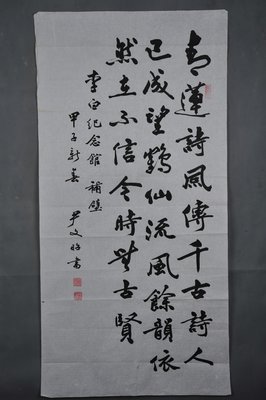 青蓮詩風傳千古詩人
已成望鶴仙流風餘韻依
然在不信今時無古賢
李白紀念館補壁
甲子新春 尹文昭書